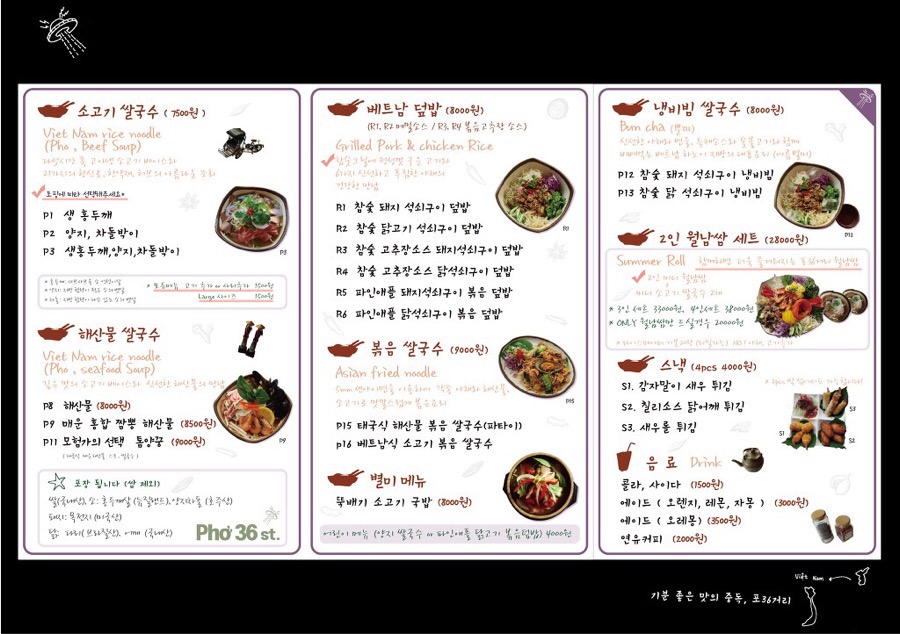 소고기 쌀국수 ( 7500원 )
Viet Nam rice noodle
(Pho , Beef Soup)
토핑에 따라 선택해주세요*
P1 생 홍두깨
P2 양지, 차돌박이
P3 생홍두깨,양지,차돌박이
P3
Large 사이즈 1500원
해산물 쌀국수
Viet Nam rice noodle
(Pho , seafood Soup)
P8 해산물 (8000원)
P9 매운 홍합 짬뽕 해산물 (8500원)
P11 모험가의 선택 똠양꿍 (9000원)
P9
포장 됩니다 (쌈 제외)
쌀(국내산), 소: 홍두깨살 (뉴질랜드), 양지차돌 (호주산)
돼지: 목전지 (미국산)
닭: 다리 (브라질산), 어깨 (국내산)
Pho 36 st.
베트남 덮밥 (8000원)
(R1, R2 메밀소스 / R3, R4 볶음고추장 소스)
Grilled Pork & chicken Rice
R1 참숯 돼지 석쇠구이 덮밥
R2 참숯 닭고기 석쇠구이 덮밥
R3 참숯 고추장소스 돼지석쇠구이 덮밥
R4 참숯 고추장소스 닭석쇠구이 덮밥
R5 파인애플 돼지석쇠구이 볶음 덮밥
R6 파인애플 닭석쇠구이 볶음 덮밥
R1
볶음 쌀국수 (9000원)
Asian fried noodle
P15 태국식 해산물 볶음 쌀국수(파타이)
p16 베트남식 소고기 볶음 쌀국수
P15
별미 메뉴
뚝배기 소고기 국밥 (8000원)
어린이 메뉴 (양지 쌀국수 or 파인애플 닭고기 볶음덮밥) 4000원
냉비빔 쌀국수 (8000원)
Bun cha (분짜)
P12 참숯 돼지 석쇠구이 냉비빔
P13 참숯 닭 석쇠구이 냉비빔
P12
2인 월남쌈 세트 (28000원)
Summer Roll
2인 미니 월남쌈
+
미니 소고기 쌀국수 2개
* 3인 세트 33000원, 4인세트 38000원
* ONLY 월남쌈만 드실경우 20000원
스낵 (4pcs 4000원)
S1. 감자말이 새우 튀김
S2. 칠리소스 닭어깨 튀김
S3. 새우롤 튀김
S3
S1
S2
음료 Drink
콜라, 사이다 (1500원)
에이드 ( 오렌지, 레몬, 자몽 ) (3000원)
에이드 ( 오레몽 ) (3500원)
연유커피 (2000원)
Việt Nam
기분 좋은 맛의 중독, 포36거리